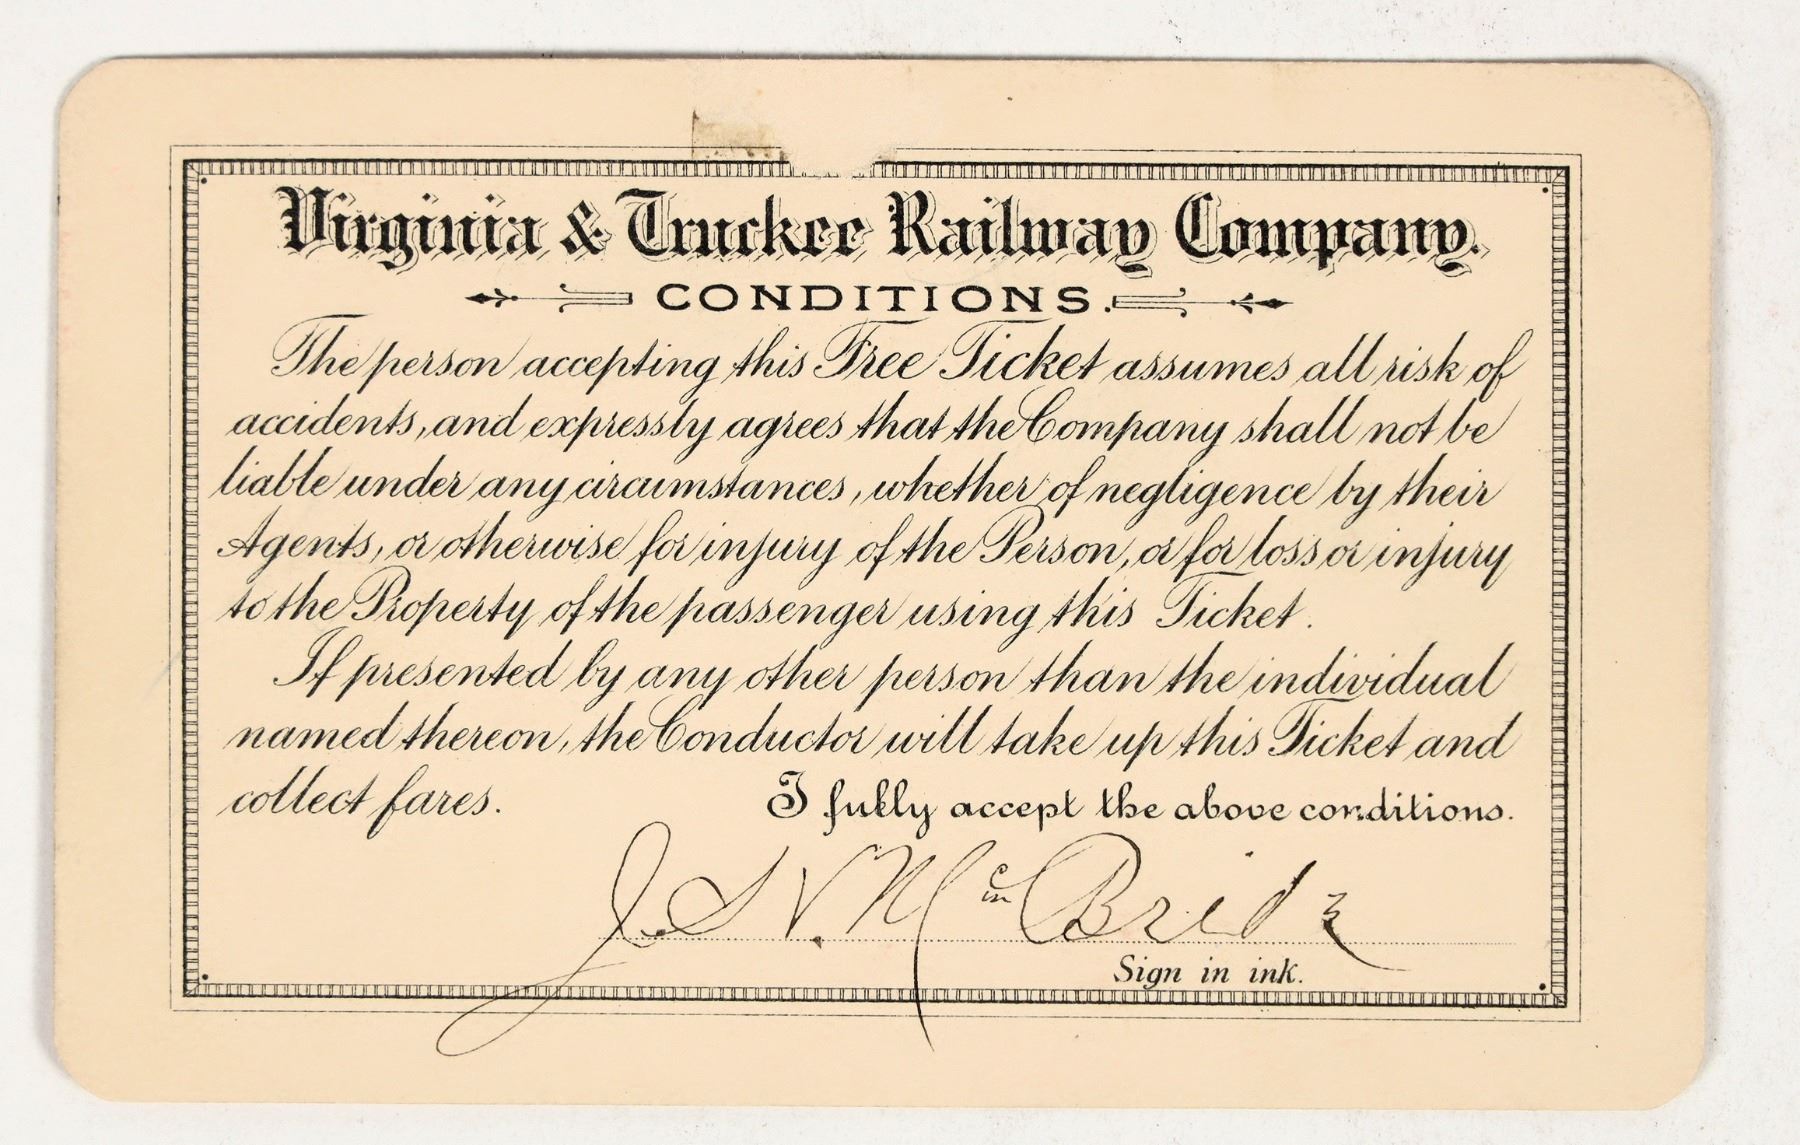 Virginia & Truckee Railway Company.
CONDITIONS.
The person accepting this Free Ticket assumes all risk of
accidents, and expressly agrees that the Company shall not be
liable under any circumstances, whether of negligence by their
Agents, or otherwise for injury of the Person, or for loss or injury
to the Property of the passenger using this Ticket.
If presented by any other person than the individual
named thereon, the Conductor will take up this Ticket and
collect fares.
I fully accept the above conditions.
McBride
Sign in ink.